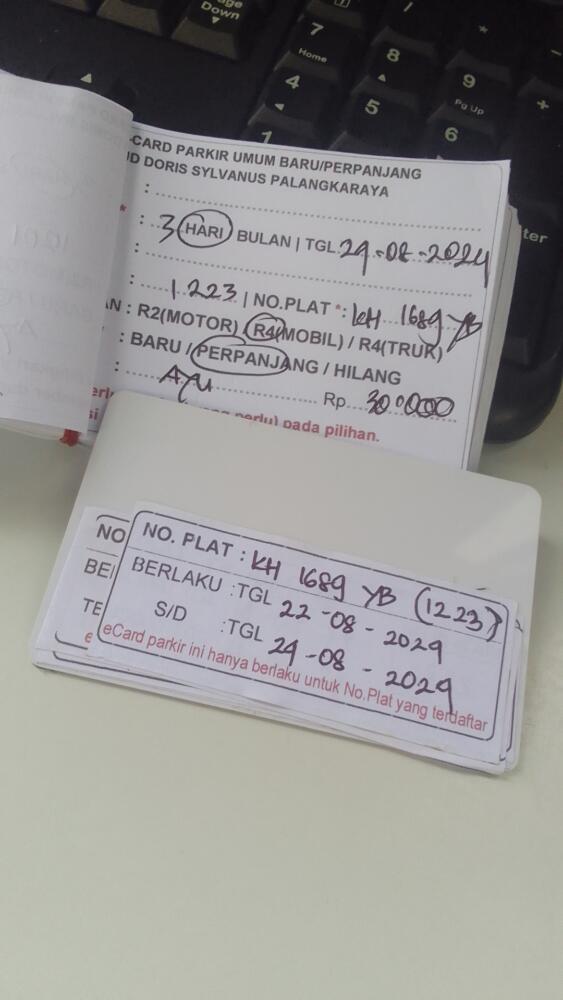 Page
Down
/
*
-
7
Home
8
9
Pg Up
+
4
5
6
1
ter
-CARD PARKIR UMUM BARU/PERPANJANG
UD DORIS SYLVANUS PALANGKARAYA
:
* : 3 HARI BULAN | TGL 24-08-2024
:
: 1223 | NO.PLAT * : KH 1689 YB
AN : R2(MOTOR) / R4(MOBIL) / R4(TRUK)
: BARU / PERPANJANG / HILANG
: Ayu Rp. 30.000
perlu) pada pilihan.
NO
BE
TE
e
NO. PLAT : KH 1689 YB (1223)
BERLAKU :TGL 22-08-2024
S/D :TGL 24-08-2024
eCard parkir ini hanya berlaku untuk No.Plat yang terdaftar